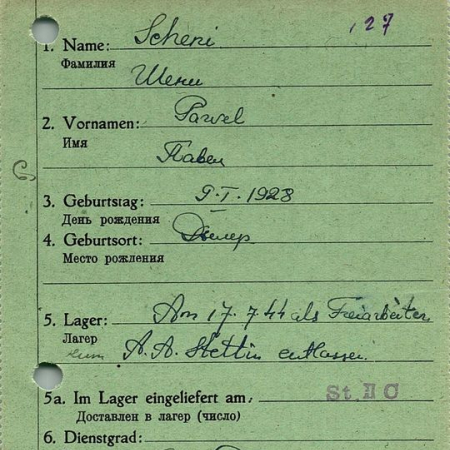 127
1. Name: Scheni
Фамилия
Шени
2. Vornamen: Pawel
Имя
Павел
3. Geburtstag: 9.I.1928
День рождения
4. Geburtsort:
Место рождения
5. Lager: Am 17.7.44 als Freiarbeiter
Лагер
A. A. Stettin entlassen.
5a. Im Lager eingeliefert am: St. II C
Доставлен в лагер (число)
6. Dienstgrad: